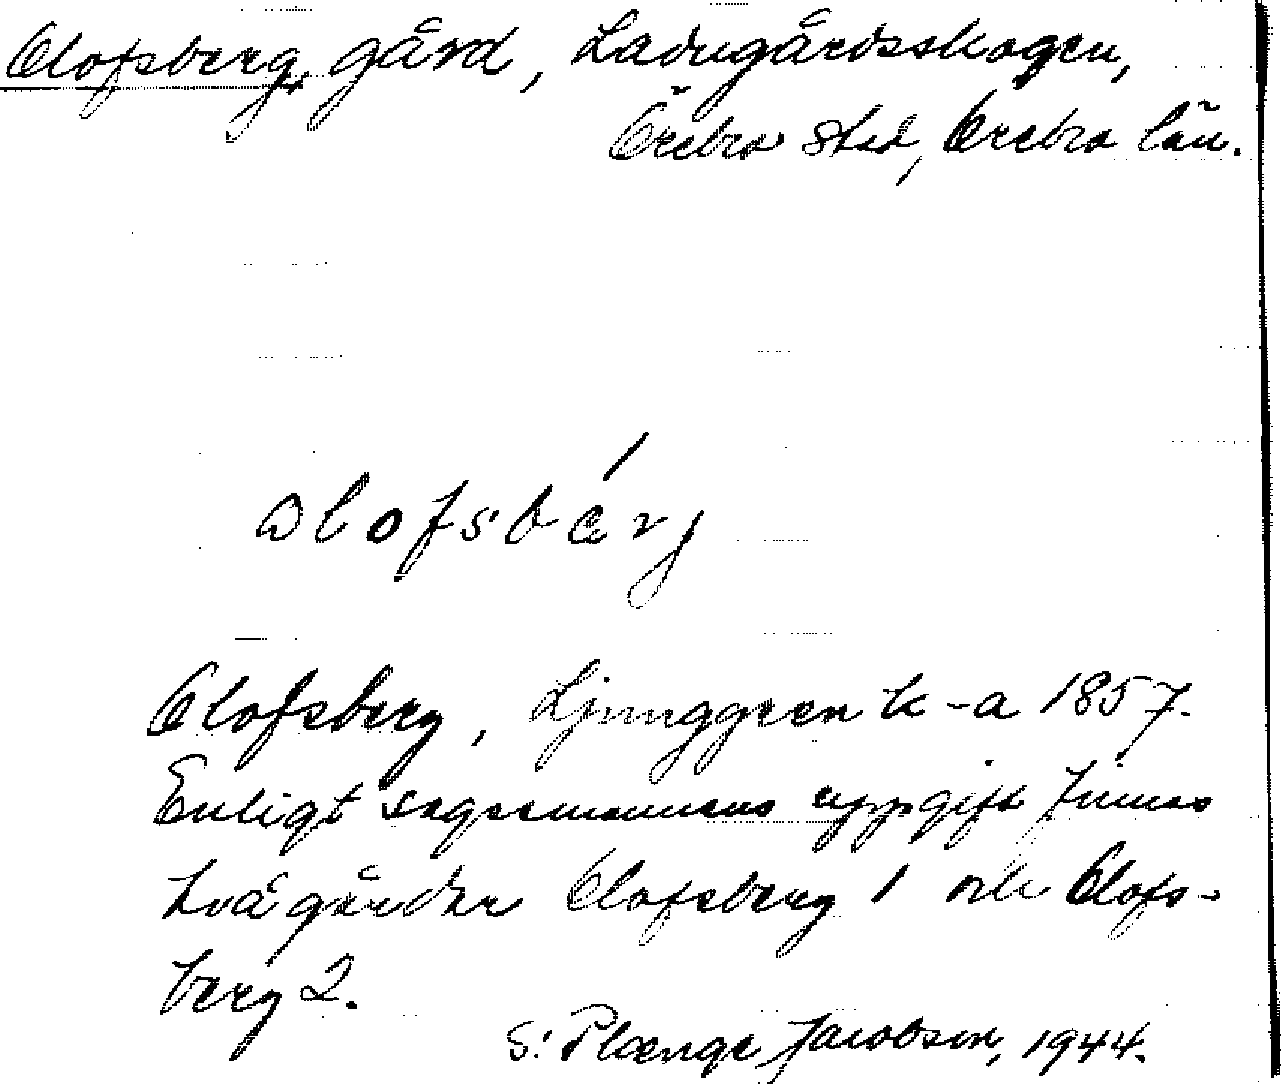 Olofsberg, gård, Ladugårdsskogen,
Örebro stad, Örebro län.
olofsbérj
Olofsberg, Ljunggren k-a 1857.
Enligt sagesmannens uppgift finnas
två gårdar Olofsberg 1 och Olofs-
berg 2.
S. Plænge Jacobson, 1944.